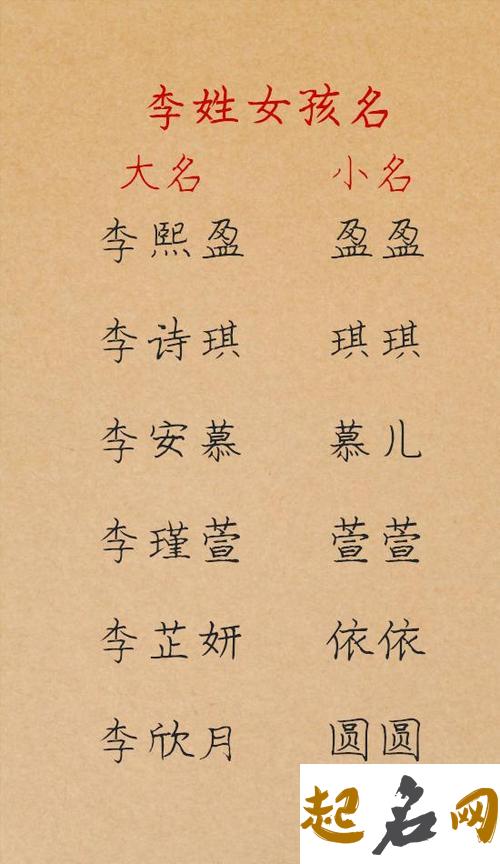 李姓女孩名
大名 小名
李熙盈 盈盈
李诗琪 琪琪
李安慕 慕儿
李瑾萱 萱萱
李芷妍 依依
李欣月 圆圆
起名网